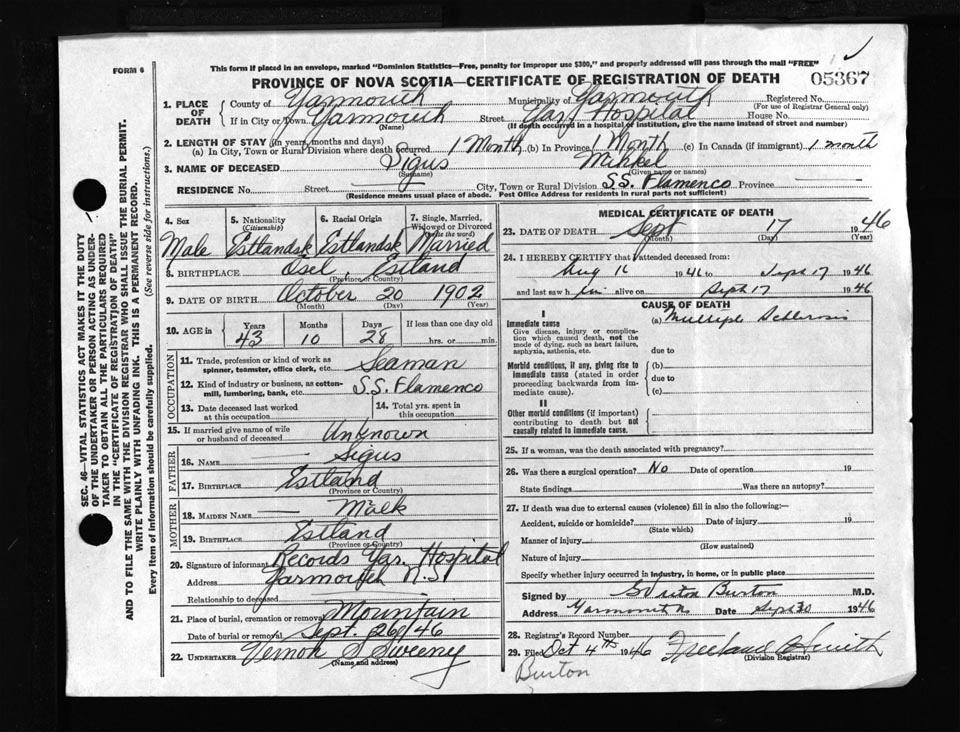 FORM 6
This form if placed in an envelope, marked "Dominion Statistics—Free, penalty for improper use $300," and properly addressed will pass through the mail "FREE"
PROVINCE OF NOVA SCOTIA—CERTIFICATE OF REGISTRATION OF DEATH
05367
1. PLACE OF DEATH
County of Yarmouth Municipality of Yarmouth Registered No.
(For use of Registrar General only)
If in City or Town Yarmouth Street Yar. Hospital House No.
(Name) (If death occurred in a hospital or institution, give the name instead of street and number)
2. LENGTH OF STAY (in years, months and days)
(a) In City, Town or Rural Division where death occurred 1 Month (b) In Province 1 Month (c) In Canada (if immigrant) 1 month
3. NAME OF DECEASED Sigus Mihkel
(Surname) (Given name or names)
RESIDENCE No. Street City, Town or Rural Division S.S. Flamenco Province
(Residence means usual place of abode. Post Office Address for residents in rural parts not sufficient)
4. Sex
Male
5. Nationality (Citizenship)
Estlandsk
6. Racial Origin
Estlandsk
7. Single, Married, Widowed or Divorced (Use the word)
Married
8. BIRTHPLACE Osel, Estland
(Province or Country)
9. DATE OF BIRTH October 20 1902
(Month) (Day) (Year)
10. AGE in Years 43 Months 10 Days 28 If less than one day old hrs. or min.
OCCUPATION
11. Trade, profession or kind of work as spinner, teamster, office clerk, etc. Seaman
12. Kind of industry or business, as cotton-mill, lumbering, bank, etc. S.S. Flamenco
13. Date deceased last worked at this occupation
14. Total yrs. spent in this occupation
15. If married give name of wife or husband of deceased Unknown
FATHER
16. NAME Sigus
17. BIRTHPLACE Estland
(Province or Country)
MOTHER
18. MAIDEN NAME Malk
19. BIRTHPLACE Estland
(Province or Country)
20. Signature of informant Records Yar. Hospital
Address Yarmouth N.S.
Relationship to deceased
21. Place of burial, cremation or removal Mountain
Date of burial or removal Sept. 26/46
22. UNDERTAKER Vernon S Sweeny
(Name and address)
MEDICAL CERTIFICATE OF DEATH
23. DATE OF DEATH Sept 17 1946
(Month) (Day) (Year)
24. I HEREBY CERTIFY that I attended deceased from:
Aug 16 1946 to Sept 17 1946
and last saw him alive on Sept 17 1946
CAUSE OF DEATH
I
Immediate cause
Give disease, injury or complication which caused death, not the mode of dying, such as heart failure, asphyxia, asthenia, etc.
(a) Multiple Sclerosis
due to
Morbid conditions, if any, giving rise to immediate cause (stated in order proceeding backwards from immediate cause).
(b)
due to
(c)
II
Other morbid conditions (if important) contributing to death but not causally related to immediate cause.
25. If a woman, was the death associated with pregnancy?
26. Was there a surgical operation? No Date of operation 19
State findings Was there an autopsy?
27. If death was due to external causes (violence) fill in also the following:—
Accident, suicide or homicide? Date of injury 19
(State which)
Manner of injury
(How sustained)
Nature of injury
Specify whether injury occurred in industry, in home, or in public place
Signed by Burton M.D.
Address Yarmouth Date Sept 30 1946
28. Registrar's Record Number
29. Filed Oct 4th 1946 Smith
(Division Registrar)
Burton
SEC. 46—VITAL STATISTICS ACT MAKES IT THE DUTY
OF THE UNDERTAKER OR PERSON ACTING AS UNDER-
TAKER TO OBTAIN ALL THE PARTICULARS REQUIRED
IN THE "CERTIFICATE OF REGISTRATION OF DEATH"
AND TO FILE THE SAME WITH THE DIVISION REGISTRAR WHO SHALL ISSUE THE BURIAL PERMIT.
WRITE PLAINLY WITH UNFADING INK. THIS IS A PERMANENT RECORD.
Every item of information should be carefully supplied. (See reverse side for instructions.)